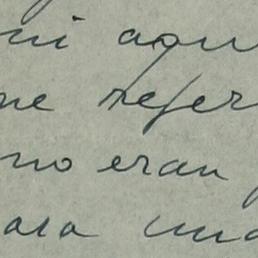 ni aqu
me refer
no eran
para una